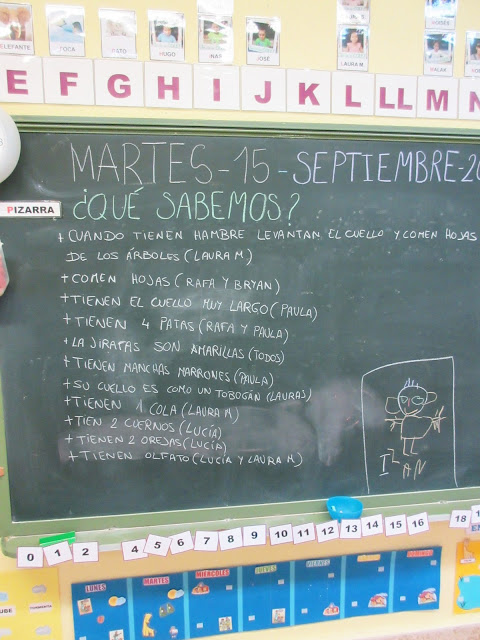 ELEFANTE FOCA GATO HUGO INA JOSÉ LAURA M
E F G H I J K L LL M N
MARTES-15-SEPTIEMBRE-20
PIZARRA
¿QUÉ SABEMOS?
+ CUANDO TIENEN HAMBRE LEVANTAN EL CUELLO Y COMEN HOJAS
DE LOS ÁRBOLES (LAURA M.)
+ COMEN HOJAS (RAFA Y BRYAN)
+ TIENEN EL CUELLO MUY LARGO (PAULA)
+ TIENEN 4 PATAS (RAFA Y PAULA)
+ LA JIRAFAS SON AMARILLAS (TODOS)
+ TIENEN MANCHAS MARRONES (PAULA)
+ SU CUELLO ES COMO UN TOBOGÁN (LAURAS)
+ TIENEN 1 COLA (LAURA M.)
+ TIEN 2 CUERNOS (LUCÍA)
+ TIENEN 2 OREJAS (LUCÍA)
+ TIENEN OLFATO (LUCÍA Y LAURA M.)
0 1 2 4 5 6 7 8 9 10 11 12 13 14 15 16 18
LUNES MARTES MIÉRCOLES JUEVES VIERNES